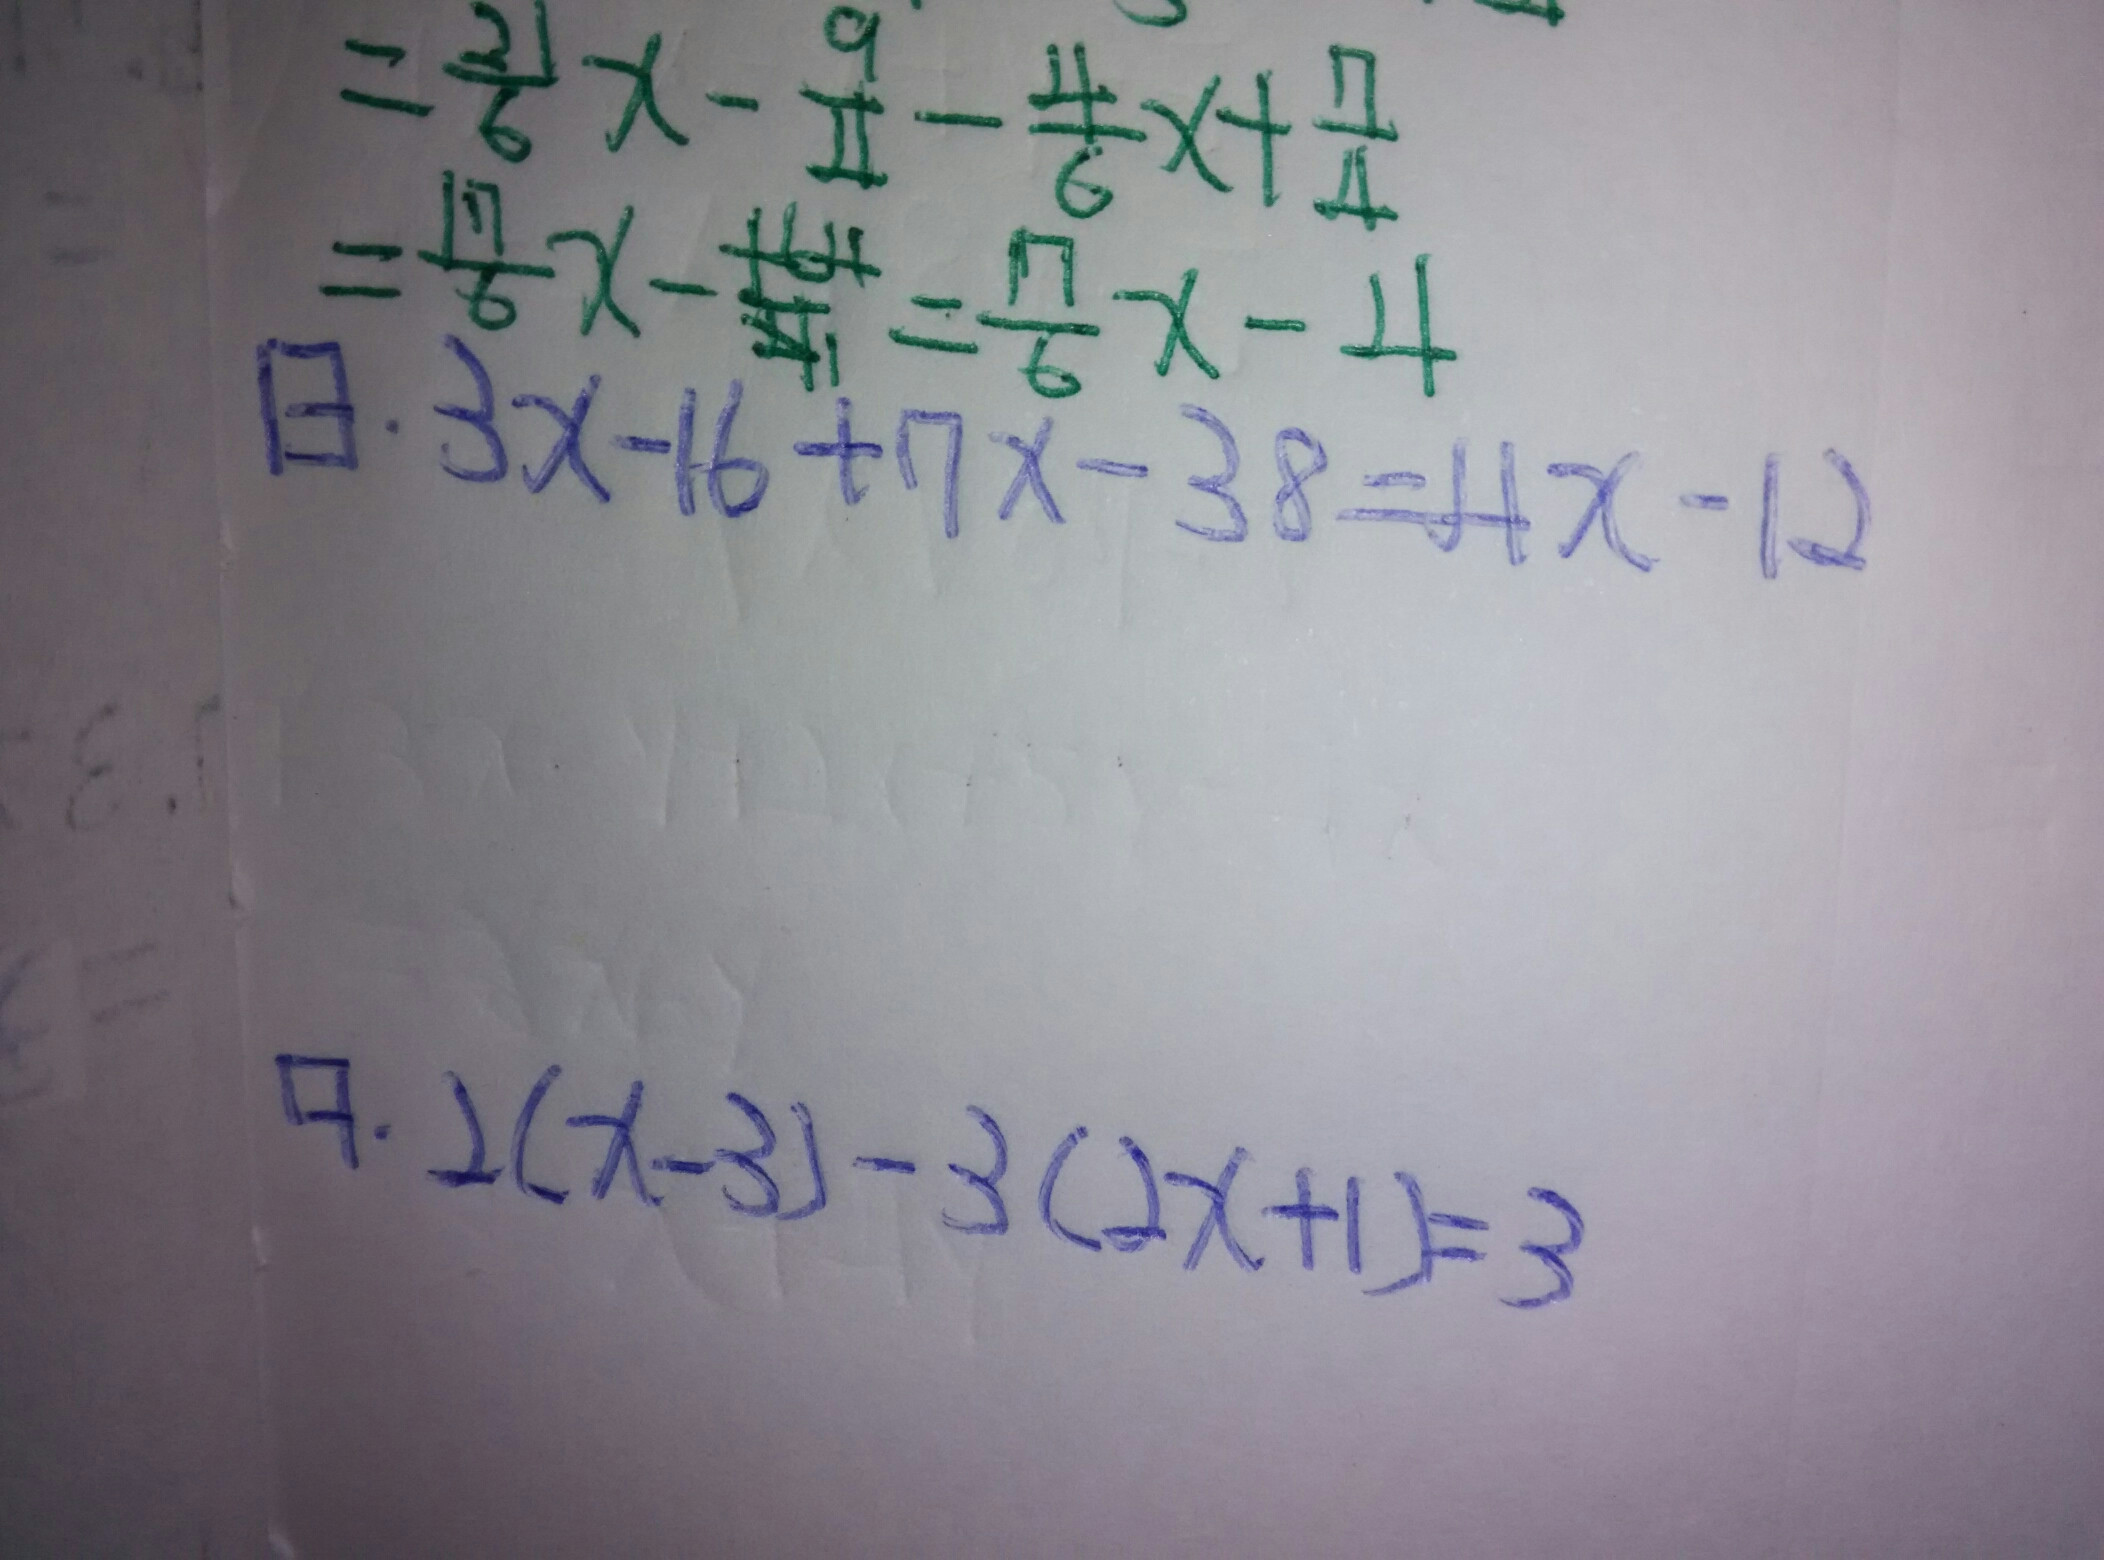 = 21/6 x - 9/4 - 4/6 x + 7/4
= 17/6 x - = 17/6 x - 4
8. 3x-16+7x-38=4x-12
9. 2(x-3)-3(2x+1)=3